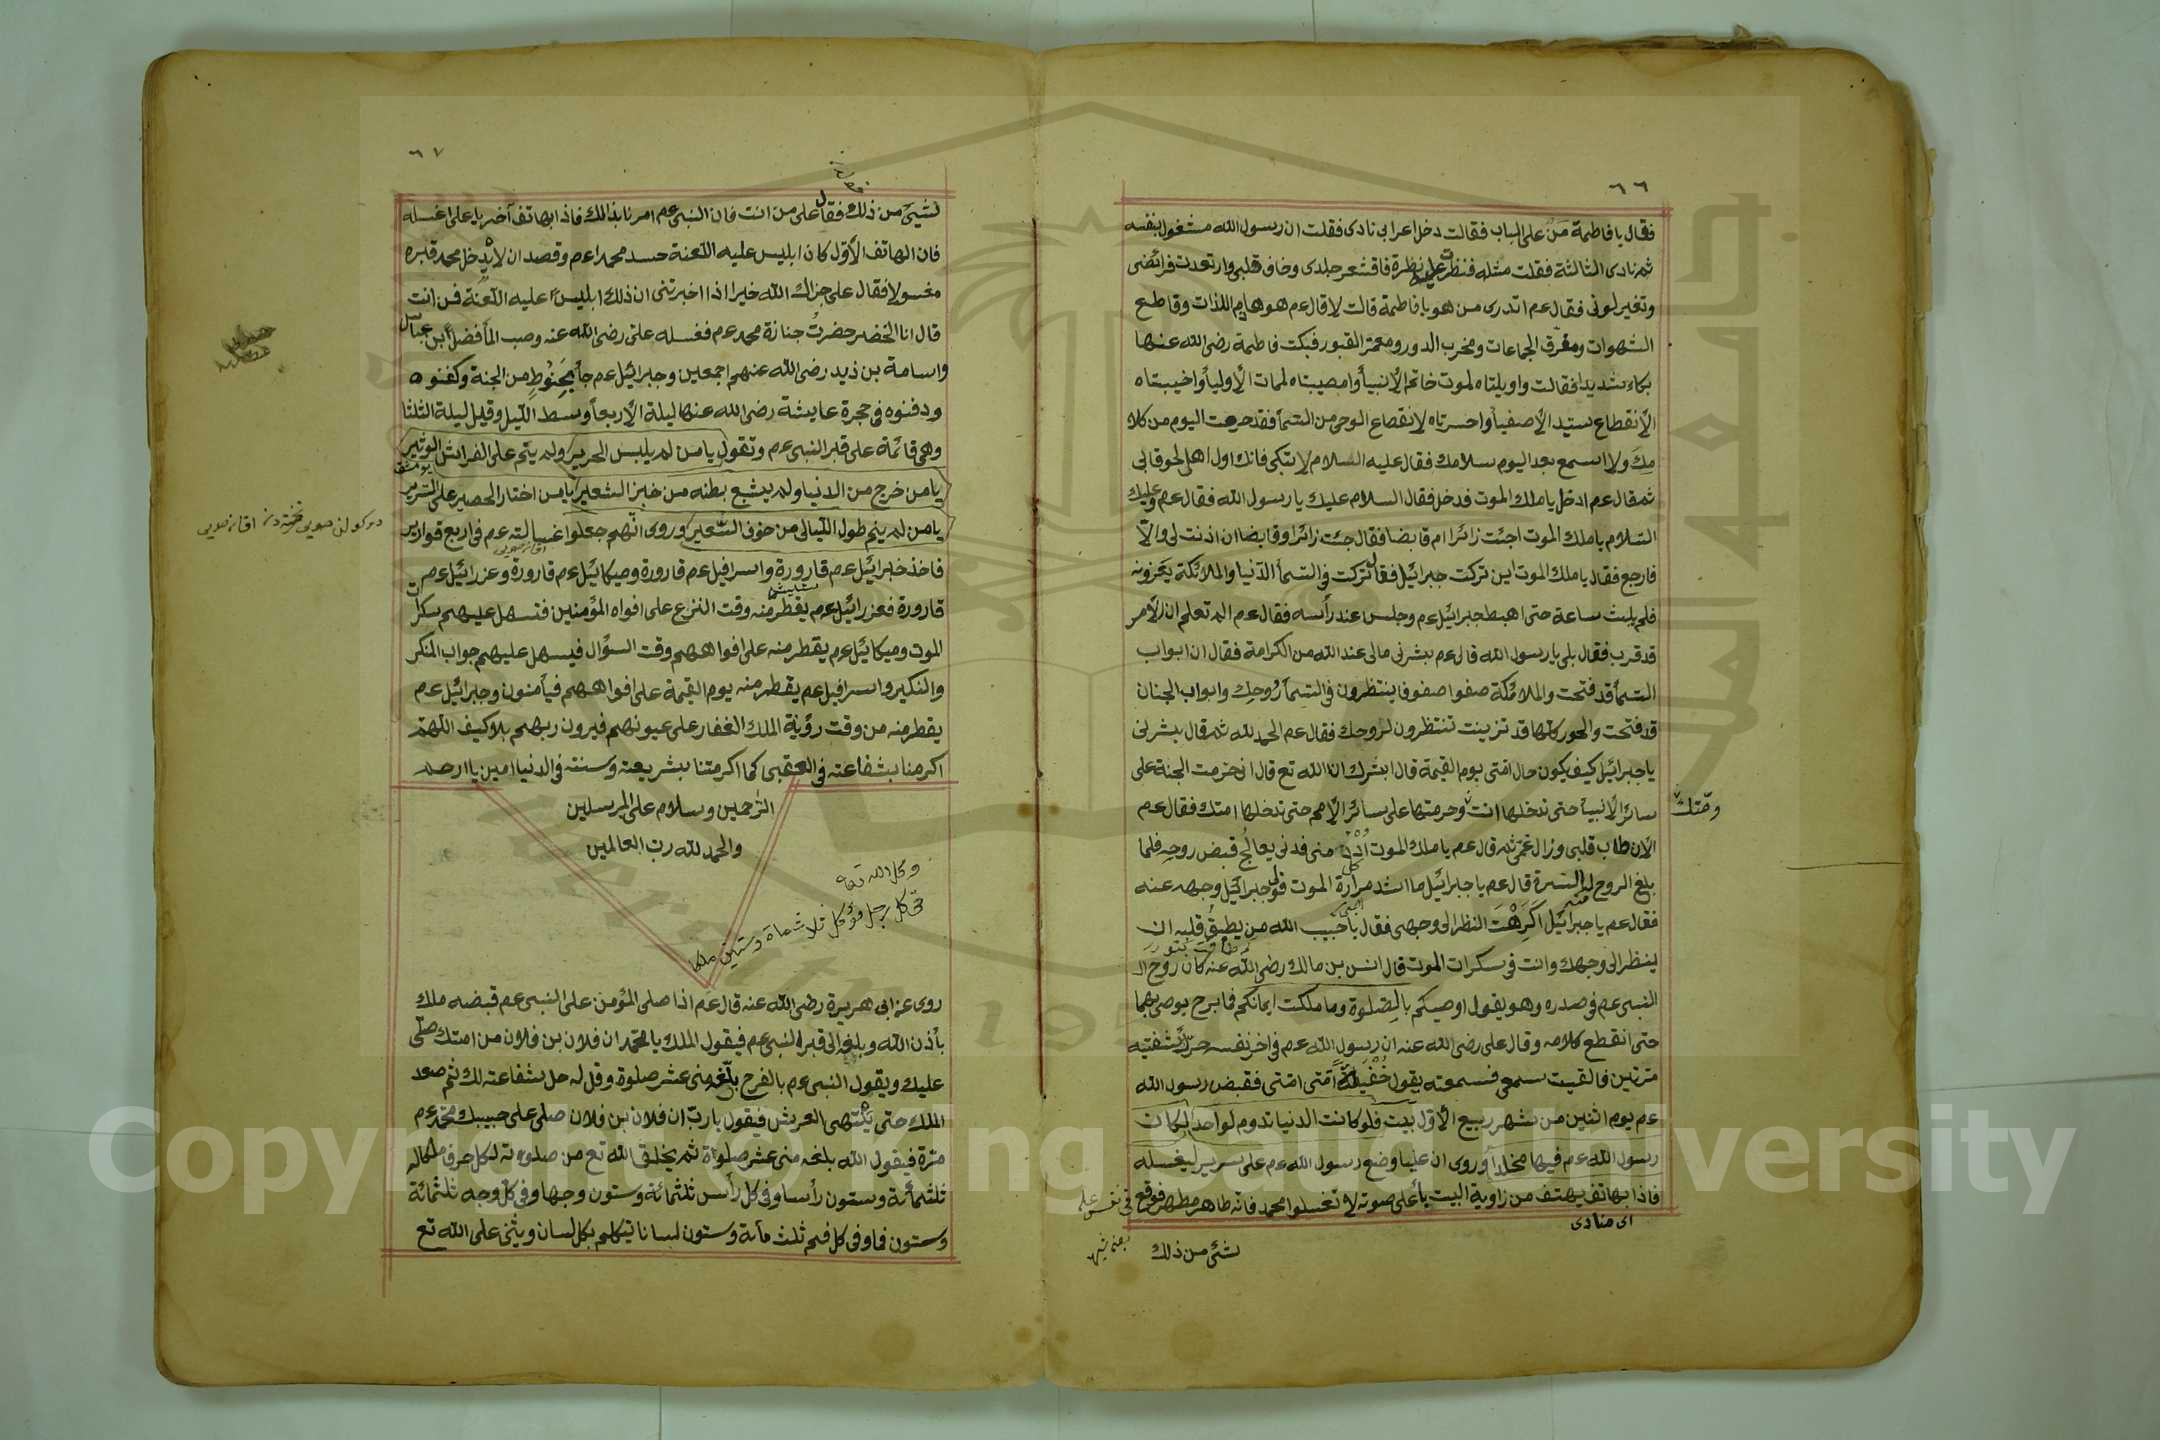 ٦٦
فقال يا فاطمة من على الباب فقالت دخل اعرابى نادى فقلت ان رسول الله مشغول بنفسه
ثم نادى الثالثة فقلت مثله فنظرت عليه نظرة فاقشعر جلدى وخاف قلبى وارتعدت فرائضى
وتغير لونى فقال عم اتدرى من هو يا فاطمة قالت لا قال عم هو هادم اللذات وقاطع
الشهوات ومفرق الجماعات ومخرب الدور ومعمر القبور فبكت فاطمة رضى الله عنها
بكاء شديدا فقالت واويلتاه لموت خاتم الأنبيأ وامصيبتاه لممات الأوليأ واخيبتاه
الأنقطاع سيد الأصفيأ واحسرتاه لانقطاع الوحى من السمأ فقد حرمت اليوم من كلا
مك ولا اسمع بعد اليوم سلامك فقال عليه السلام لا تبكى فانك اول اهلى لحوقا بى
ثم قال عم ادخل يا ملك الموت فدخل فقال السلام عليك يا رسول الله فقال عم وعليك
السلام يا ملك الموت اجئت زائرا ام قابضا فقال جئت زائرا وقابضا ان اذنت لى والا
فارجع فقال يا ملك الموت اين تركت جبرائيل فقال تركت فى السمأ الدنيا والملائكة يعزونه
فلم يلبث ساعة حتى اهبط جبرائيل عم وجلس عند رأسه فقال عم الم تعلم ان الأمر
قد قرب فقال بلى يا رسول الله قال عم بشرنى مالى عند الله من الكرامة فقال ان ابواب
السمأ قد فتحت والملائكة صفوا صفوفا ينتظرون فى السمأ روحك وابواب الجنان
قد فتحت والحور كلها قد تزينت تنتظرون لروحك فقال عم الحمد لله ثم قال بشرنى
يا جبرائيل كيف يكون حال امتى يوم القيمة قال ابشرك ان الله تع قال انى حرمت الجنة على
سائر الأنبيأ حتى تدخلها انت وحرمتها على سائر الأمم حتى تدخلها امتك فقال عم
الأن طاب قلبى وزال غمى ثم قال عم يا ملك الموت ادن منى فدنى يعالج قبض روحه فلما
بلغ الروح السرة قال عم يا جبرائيل ما اشد مرارة الموت فولى جبرائيل وجهه عنه
فقال عم يا جبرائيل اكرهت النظر الى وجهى فقال يا حبيب الله من يطيق قلبه ان
ينظر الى وجهك وانت فى سكرات الموت قال انس بن مالك رضى الله عنه كان روح
النبى عم فى صدره وهو يقول اوصيكم بالصلوة وما ملكت ايمانكم فما برح يوصى بهما
حتى انقطع كلامه وقال على رضى الله عنه ان رسول الله عم فى اخر نفسه حرك شفتيه
مرتين فالقيت سمعى فسمعته يقول خفية امتى امتى فقبض رسول الله
عم يوم اثنين من شهر ربيع الأول بيت فلو كانت الدنيا تدوم لواحد لكان
رسول الله عم فيها مخلدا وروى ان عليا وضع رسول الله عم على سرير ليغسله
فاذا بهاتف يهتف من زاوية البيت بأعلى صوته لا تغسلوا محمد فانه طاهر مطهر فوقع
اى منادى
فى نفس على
شئ من ذلك
٦٧
لشئ من ذلك فقال على من انت فان النبى عم امرنا بذالك فاذا بهاتف آخر يا على اغسله
فان الهاتف الأول كان ابليس عليه اللعنة حسد محمدا عم وقصد ان لا يدخل محمد قبره
مغسولا فقال على جزاك الله خيرا اذا اخبرتنى ان ذلك ابليس عليه اللعنة فمن انت
قال انا الخضر حضرت جنازة محمد عم فغسله على رضى الله عنه وصب المأ فضل ابن عباس
واسامة بن زيد رضى الله عنهم اجمعين وجبرائيل عم جأ بحنوط من الجنة وكفنوه
ودفنوه فى حجرة عايشة رضى الله عنها ليلة الأربعأ وسط الليل وقيل ليلة الثلثا
وهى قائمة على قبر النبى عم وتقول يا من لم يلبس الحرير ولم ينم على الفراش الوثير
يا من خرج من الدنيا ولم يشبع بطنه من خبز الشعير يا من اختار الحصير على السرير
يا من لم ينم طول الليالى من خوف السعير وروى انهم جعلوا غسالته عم فى اربع قوارير
فاخذ جبرائيل عم قارورة واسرافيل عم قارورة وميكائيل عم قارورة وعزرائيل عم
قارورة فعزرائيل عم يقطر منه وقت النزع على افواه المؤمنين فتسهل عليهم سكرات
الموت وميكائيل عم يقطر منه على افواههم وقت السؤال فيسهل عليهم جواب المنكر
والنكير واسرافيل عم يقطر منه يوم القيمة على افواههم فيأمنون وجبرائيل عم
يقطر منه من وقت رؤية الملك الغفار على عيونهم فيرون ربهم بلا كيف اللهم
اكرمنا بشفاعته فى العقبى كما اكرمتنا بشريعته وسنته فى الدنيا امين يا ارحم
الراحمين وسلام على المرسلين
والحمد لله رب العالمين
وكل الله تعا
فى كل رجل مؤكل ثلاثماة وستين ملكا
روى عن ابى هريرة رضى الله عنه قال عم اذا صلى المؤمن على النبى عم قبضه ملك
بأذن الله وبلغه الى قبر النبى عم فيقول الملك يا محمد ان فلان بن فلان من امتك صلى
عليك ويقول النبى عم بالفرح بلغه منى عشر صلوة وقل له حل شفاعته لك ثم صعد
الملك حتى ينتهى العرش فيقول يا رب ان فلان بن فلان صلى على حبيبك محمد عم
مرة فيقول الله بلغه منى عشر صلواة ثم يخلق الله تع من صلوته لكل حرف ملكا له
ثلثمائة وستون رأسا وفى كل رأس ثلثمائة وستون وجها وفى كل وجه ثلثمائة
وستون فما وفى كل فم ثلث مأة وستون لسانا تيكلم بكل لسان ويثنى على الله تع
Copyright © King Saud University